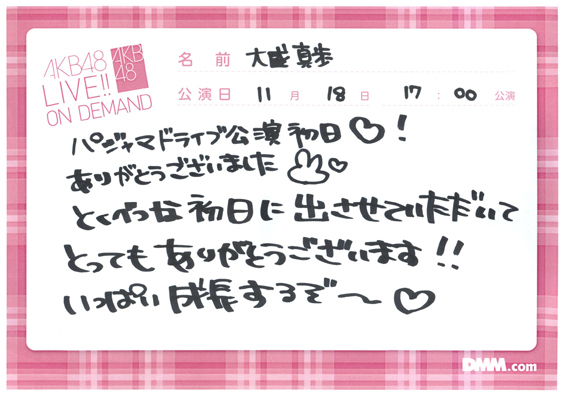 AKB48
LIVE!!
ON DEMAND
AKB
48
名前 大盛真歩
公演日 11月 18日 17:00 公演
パジャマドライブ公演初日♡!
ありがとうございました♡
とくべつな初日に出させていただいて
とってもありがとうございます!!
いっぱい成長するぞ〜♡
DMM.com